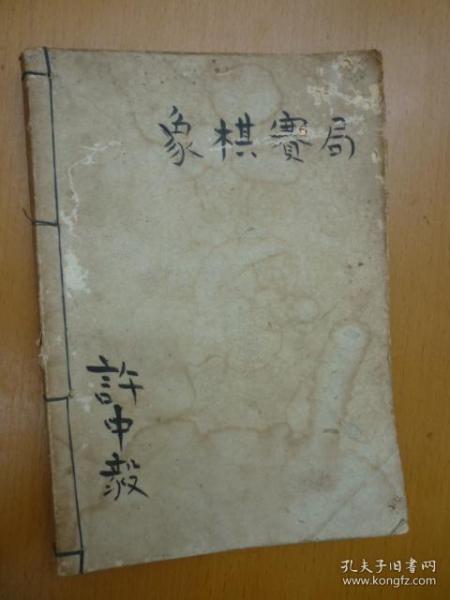 象棋賽局
許中毅
孔夫子旧书网
www.kongfz.com